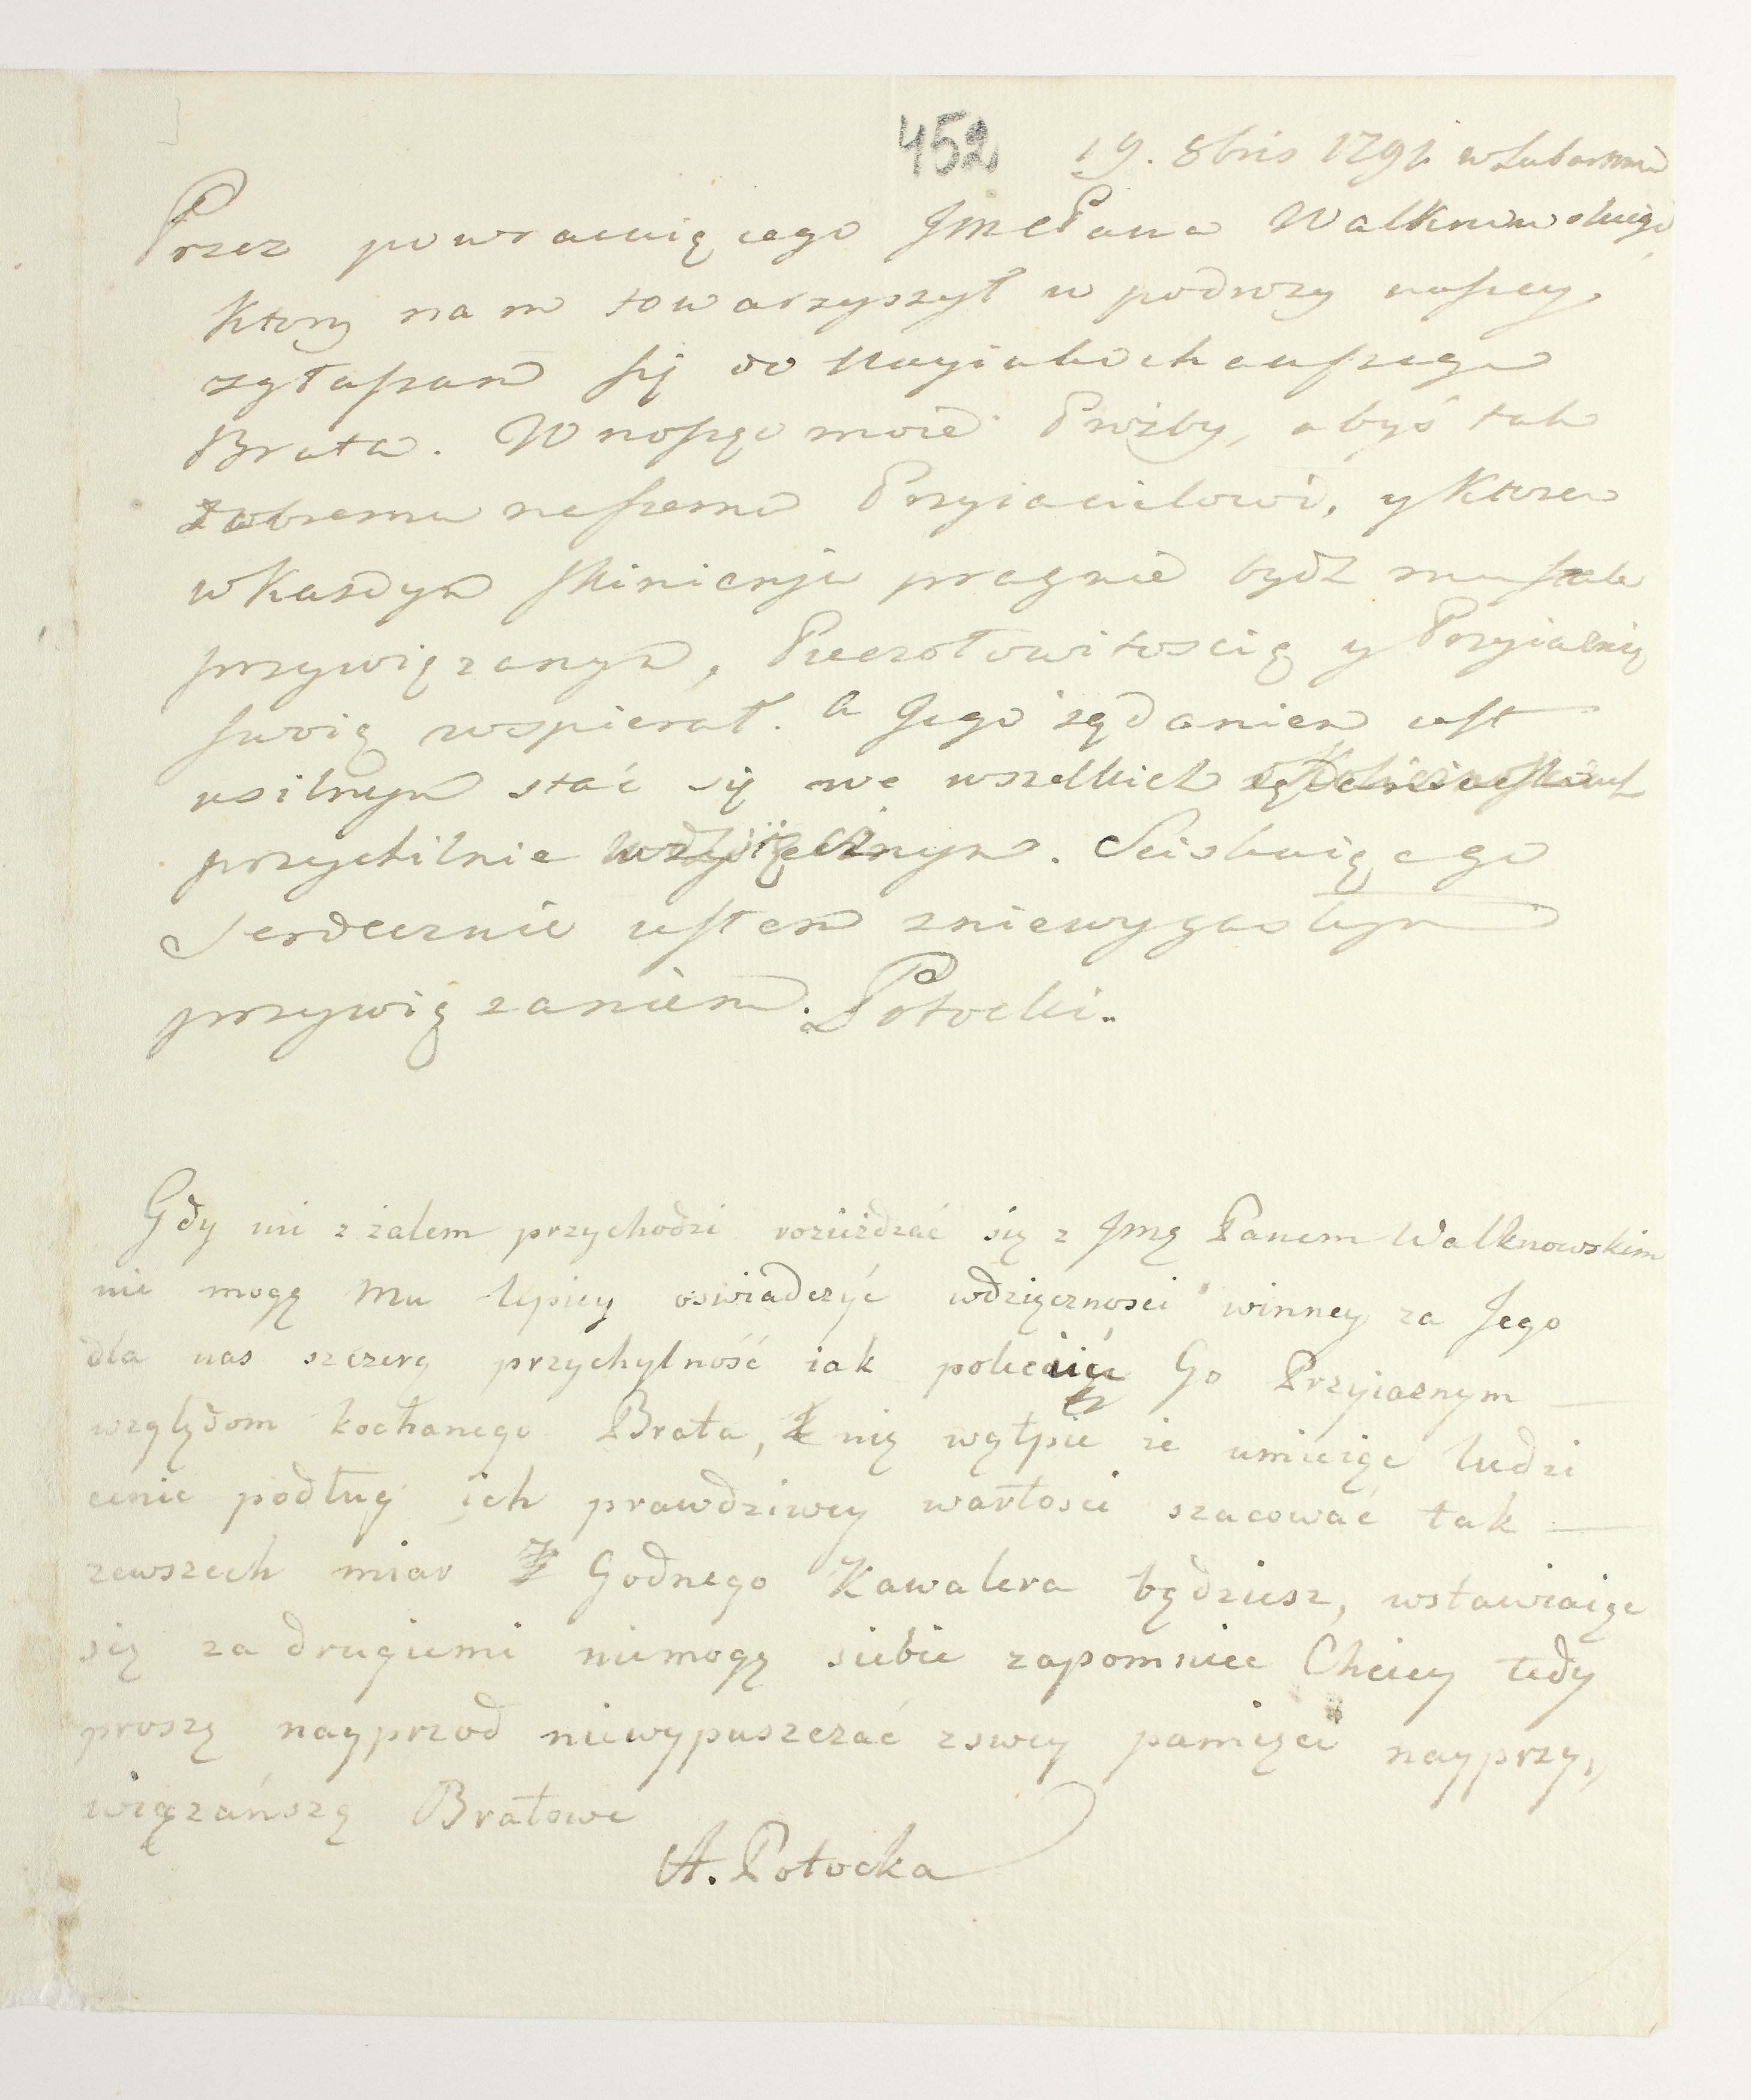 452 19. 8bris 1791 w Lubarsmu
Przez powracaiącego JmcPana Walknowskiego
ktory nam towarzyszył w podrozy naszey,
zgłaszam się do Nayukochanszego
Brata. Wnosząc moie Prozby, abyś tak
dobremu naszemu Przyiacielowi, y ktoren
w Kazdym skinieniu pragnie bydz mu stale
przywiązanym, Pieczołowitoscią y Przyiaznią
swoią wspierał. a Jego ządaniem iest
usilnym stać się we wszelkich
przychilnie wdzięcznym. Sciskaiąc go
Serdecznie iestem z niewygasłym
przywiązaniem. Potocki.
Gdy mi z żalem przychodzi rozieżdzać się z Jmą Panem Walknowskim
nie mogę Mu lepiey oswiadczyć wdzięcznosci winney za Jego
dla nas szczerą przychylność iak polecaiąc Go Przyiaznym —
względom kochanego Brata, nię wątpię że umieiąc ludzi
cenic podług ich prawdziwey wartosci szacować tak —
zewszech miar Godnego Kawalera będziesz, wstawiaiąc
się za drugiemi niemogę siebie zapomniec Chciey tedy
proszę nayprzod niewypuszczać zswey pamięci nayprzy,,
wiązańszą Bratowe
A. Potocka